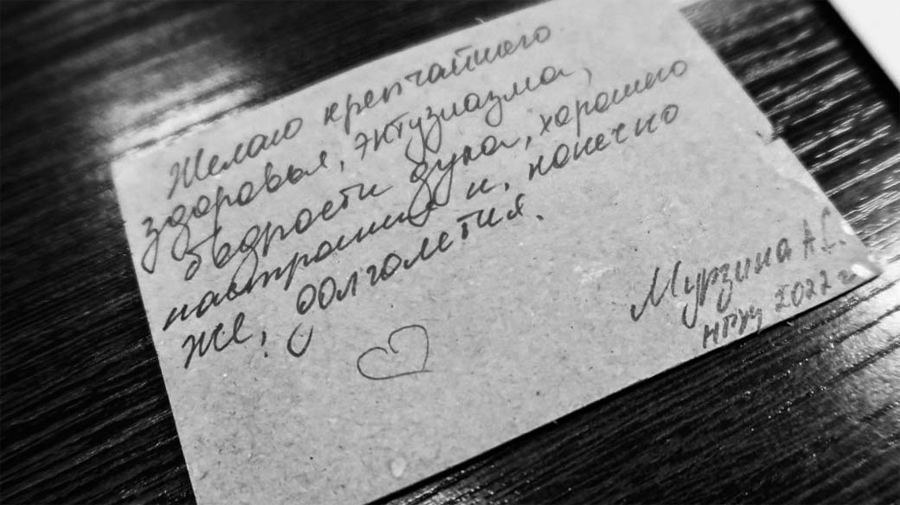 Желаю крепчайшего
здоровья, энтузиазма,
бодрости духа, хорошего
настроения и, конечно
же, долголетия.
Мурзина А.С.
2022 г.